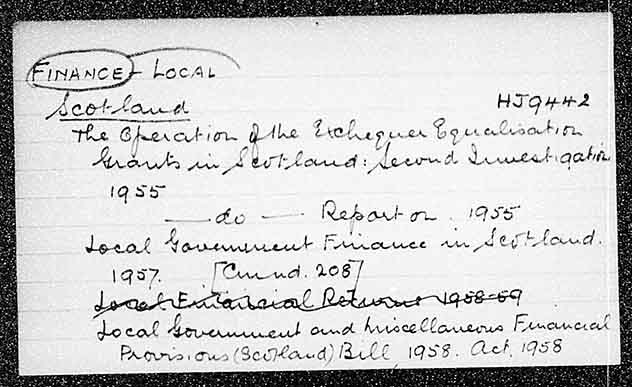 FINANCE - LOCAL
Scotland HJ9442
The Operation of the Exchequer Equalisation
Grants in Scotland: Second Investigation
1955
— do — Report on. 1955
Local Government Finance in Scotland.
1957. [Cmnd. 208]
Local Financial Returns 1958-59
Local Government and Miscellaneous Financial
Provisions (Scotland) Bill, 1958. Act, 1958